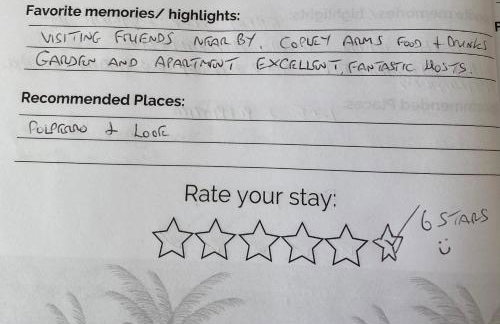 Favorite memories/ highlights:
VISITING FRIENDS NEAR BY, COPLEY ARMS FOOD + DRINKS
GARDEN AND APARTMENT EXCELLENT, FANTASTIC HOSTS.
Recommended Places:
POLPERRO + LOOE
Rate your stay:
6 STARS